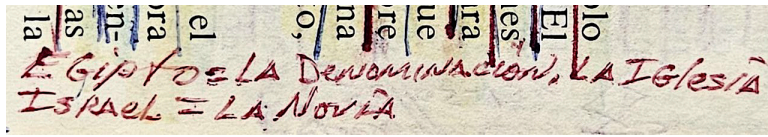 la
as
en-
ora
el
o,
na
bre
que
ara
nes
El
olo
EGipto = LA DeNomiNAción. LA IGlesiA
ISRAeL = LA NoviA